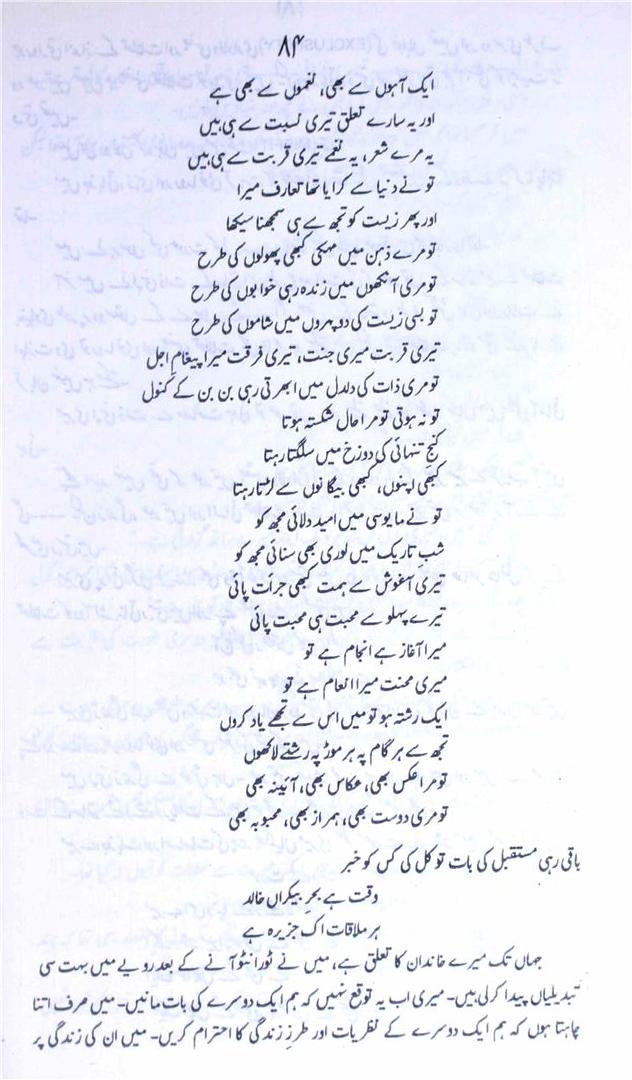 ۸۴
ایک آہوں سے بھی، نغموں سے بھی ہے
اور یہ سارے تعلق تیری نسبت سے ہی ہیں
یہ مرے شعر، یہ نغمے تیری قربت سے ہی ہیں
تو نے دنیا سے کرایا تھا تعارف میرا
اور پھر زیست کو تجھ سے ہی سمجھنا سیکھا
تو مرے ذہن میں مہکی کبھی پھولوں کی طرح
تو مری آنکھوں میں زندہ رہی خوابوں کی طرح
تو بسی زیست کی دوپہروں میں شاموں کی طرح
تیری قربت میری جنت، تیری فرقت میرا پیغامِ اجل
تو مری ذات کی دلدل میں ابھرتی رہی بن بن کے کنول
تو نہ ہوتی تو مرا حال شکستہ ہوتا
کنج تنہائی کی دوزخ میں سلگتا رہتا
کبھی اپنوں، کبھی بیگانوں سے لڑتا رہتا
تو نے مایوسی میں امید دلائی مجھ کو
شب تاریک میں لوری بھی سنائی مجھ کو
تیری آغوش سے ہمت کبھی جرات پائی
تیرے پہلو سے محبت ہی محبت پائی
میرا آغاز ہے انجام ہے تو
میری محنت میرا انعام ہے تو
ایک رشتہ ہو تو میں اس سے تجھے یاد کروں
تجھ سے ہر گام پہ ہر موڑ پہ رشتے لاکھوں
تو مرا عکس بھی، عکاس بھی، آئینہ بھی
تو مری دوست بھی، ہمراز بھی، محبوبہ بھی
باقی رہی مستقبل کی بات تو کل کی کس کو خبر
وقت ہے بحرِ بیکراں خالد
ہر ملاقات اک جزیرہ ہے
جہاں تک میرے خاندان کا تعلق ہے، میں نے ٹورانٹو آنے کے بعد رویے میں بہت سی
تبدیلیاں پیدا کر لی ہیں۔ میری اب یہ توقع نہیں کہ ہم ایک دوسرے کی بات مانیں۔ میں صرف اتنا
چاہتا ہوں کہ ہم ایک دوسرے کے نظریات اور طرزِ زندگی کا احترام کریں۔ میں ان کی زندگی پر